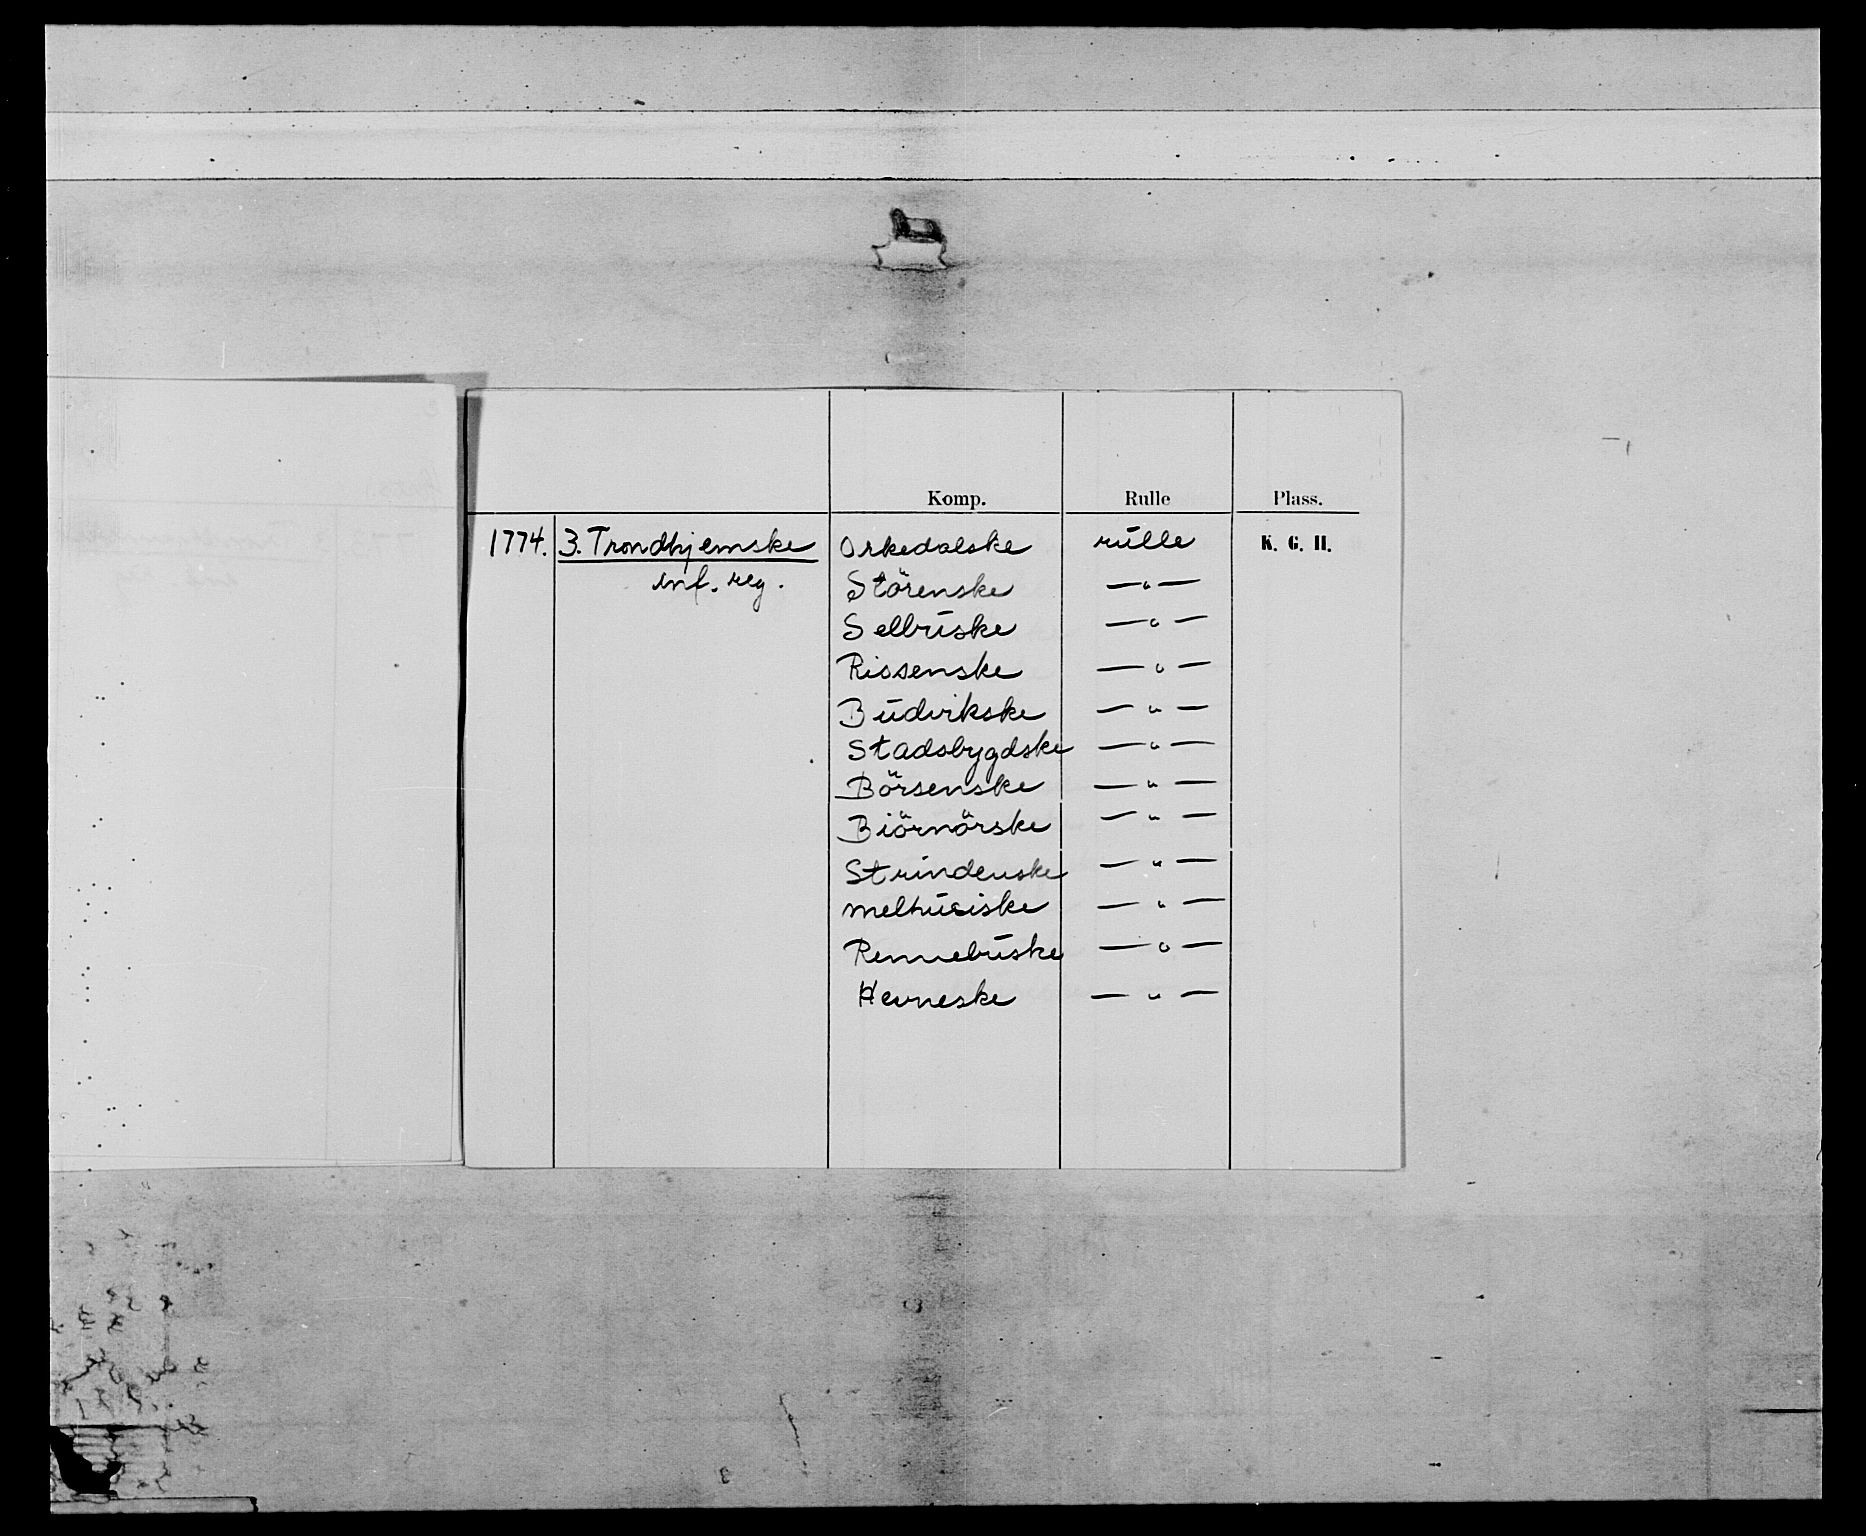 Komp. Rulle Plass.
1774. 3. Trondhjemske Orkedalske rulle K. G. H.
inf. reg. Störenske —„—
Selbuske —„—
Rissenske —„—
Budvikske —„—
Stadsbygdske —„—
Börsenske —„—
Biörnörske —„—
Strindenske —„—
Melhusiske —„—
Rennebuske —„—
Hevneske —„—